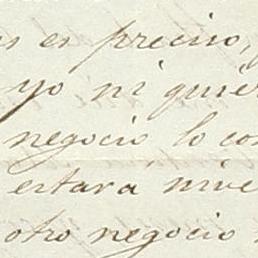 as es preciso,
yo ni quie
negocio lo co
estará nive
otro negocio